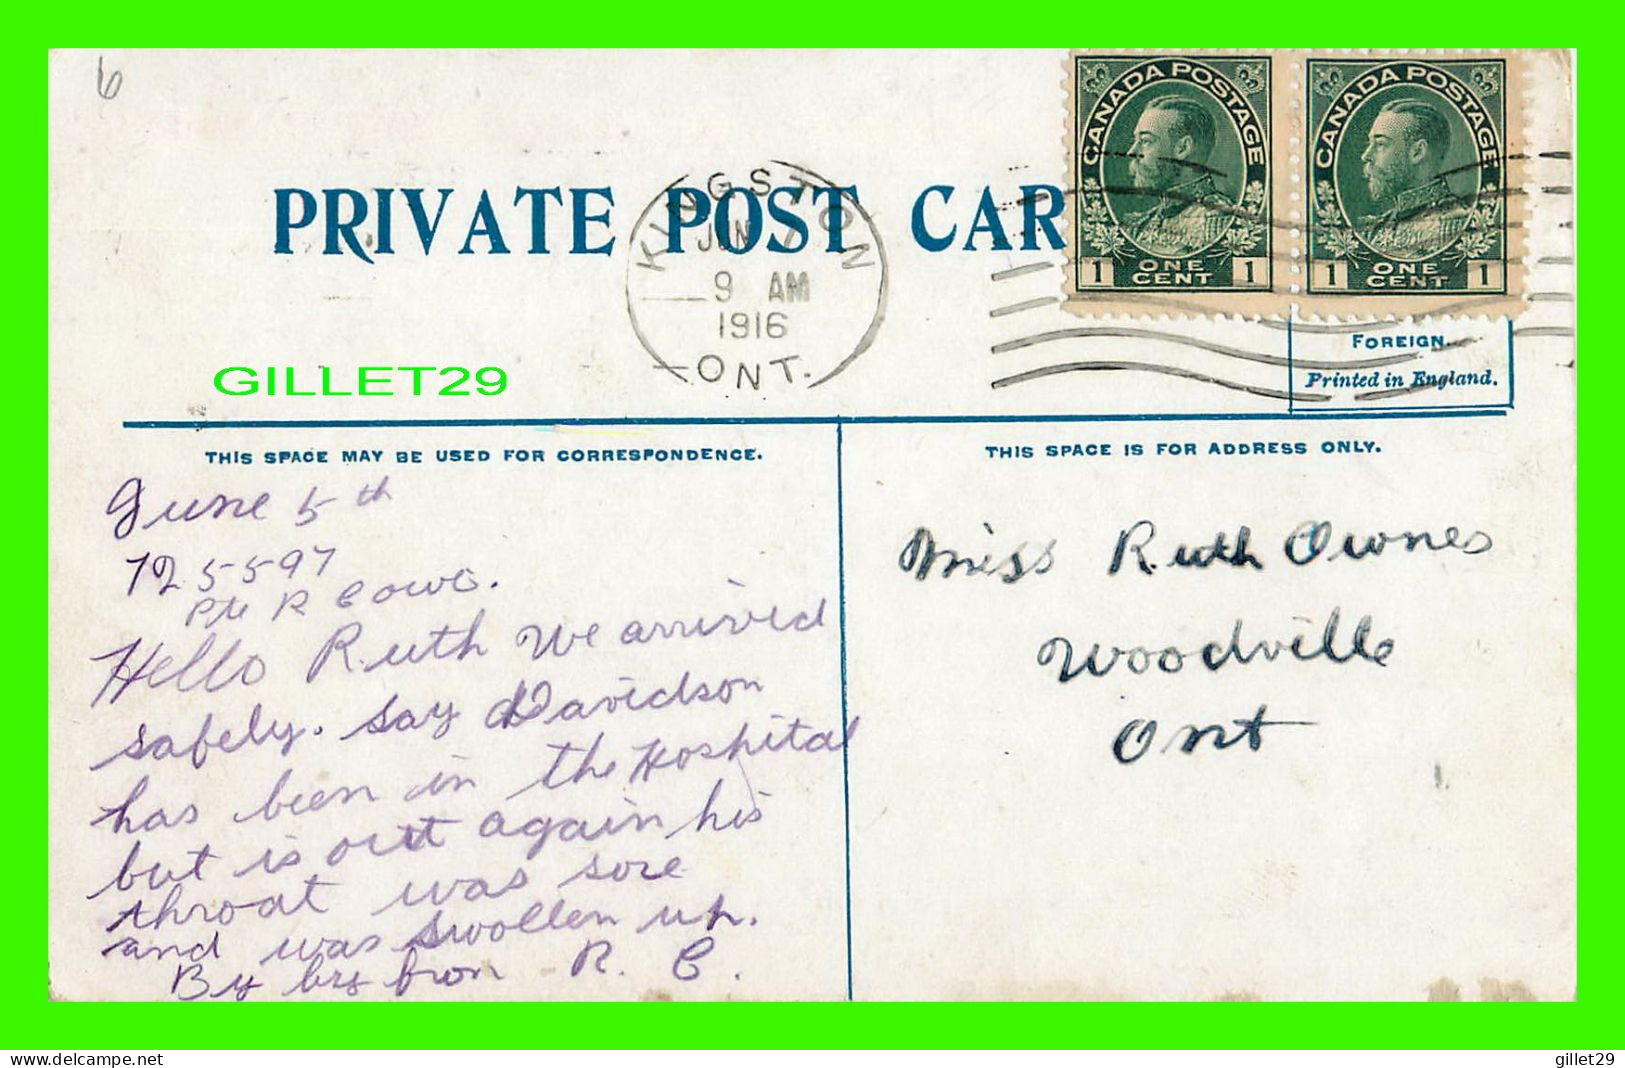 6
PRIVATE POST CAR
KINGSTON
JUN 7
9 AM
1916
ONT.
CANADA POSTAGE
1 ONE CENT 1
CANADA POSTAGE
1 ONE CENT 1
FOREIGN.
Printed in England.
GILLET29
THIS SPACE MAY BE USED FOR CORRESPONDENCE.
June 5th
725597
Pte R
Hello Ruth we arrived
safely. say Davidson
has been in the Hospital
but is out again his
throat was sore
and was swollen up.
By by from R. C.
THIS SPACE IS FOR ADDRESS ONLY.
Miss Ruth Ownes
Woodville
Ont
www.delcampe.net
gillet29